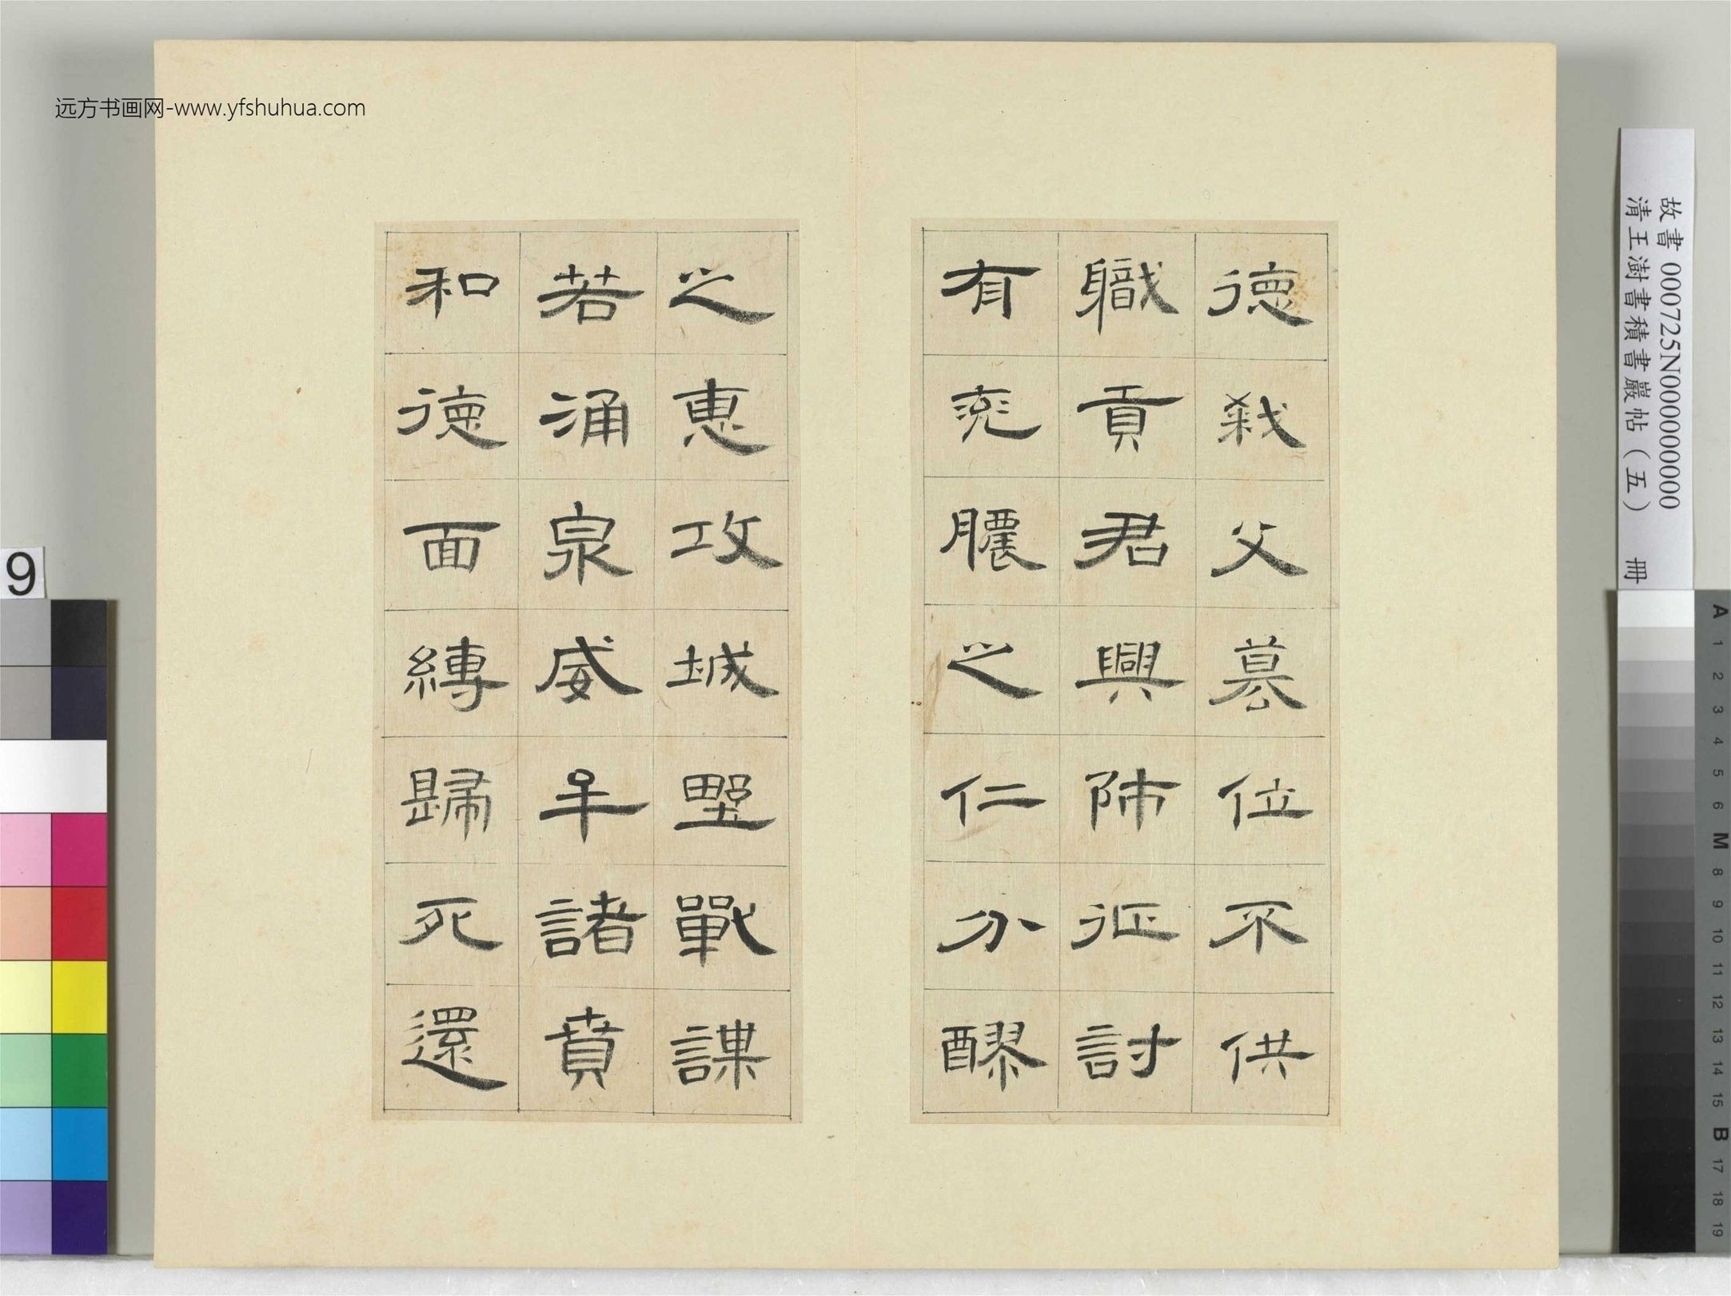 德弑父篡位不供
職貢君興師征討
有兖膿之仁分醪
之惠攻城野戰謀
若涌泉威牟諸賁
和德面縛歸死還
远方书画网-www.yfshuhua.com
故書 000725N000000000
清王澍書積書巖帖（五） 冊
9
A
1
2
3
4
5
6
M
8
9
10
11
12
13
14
15
B
17
18
19